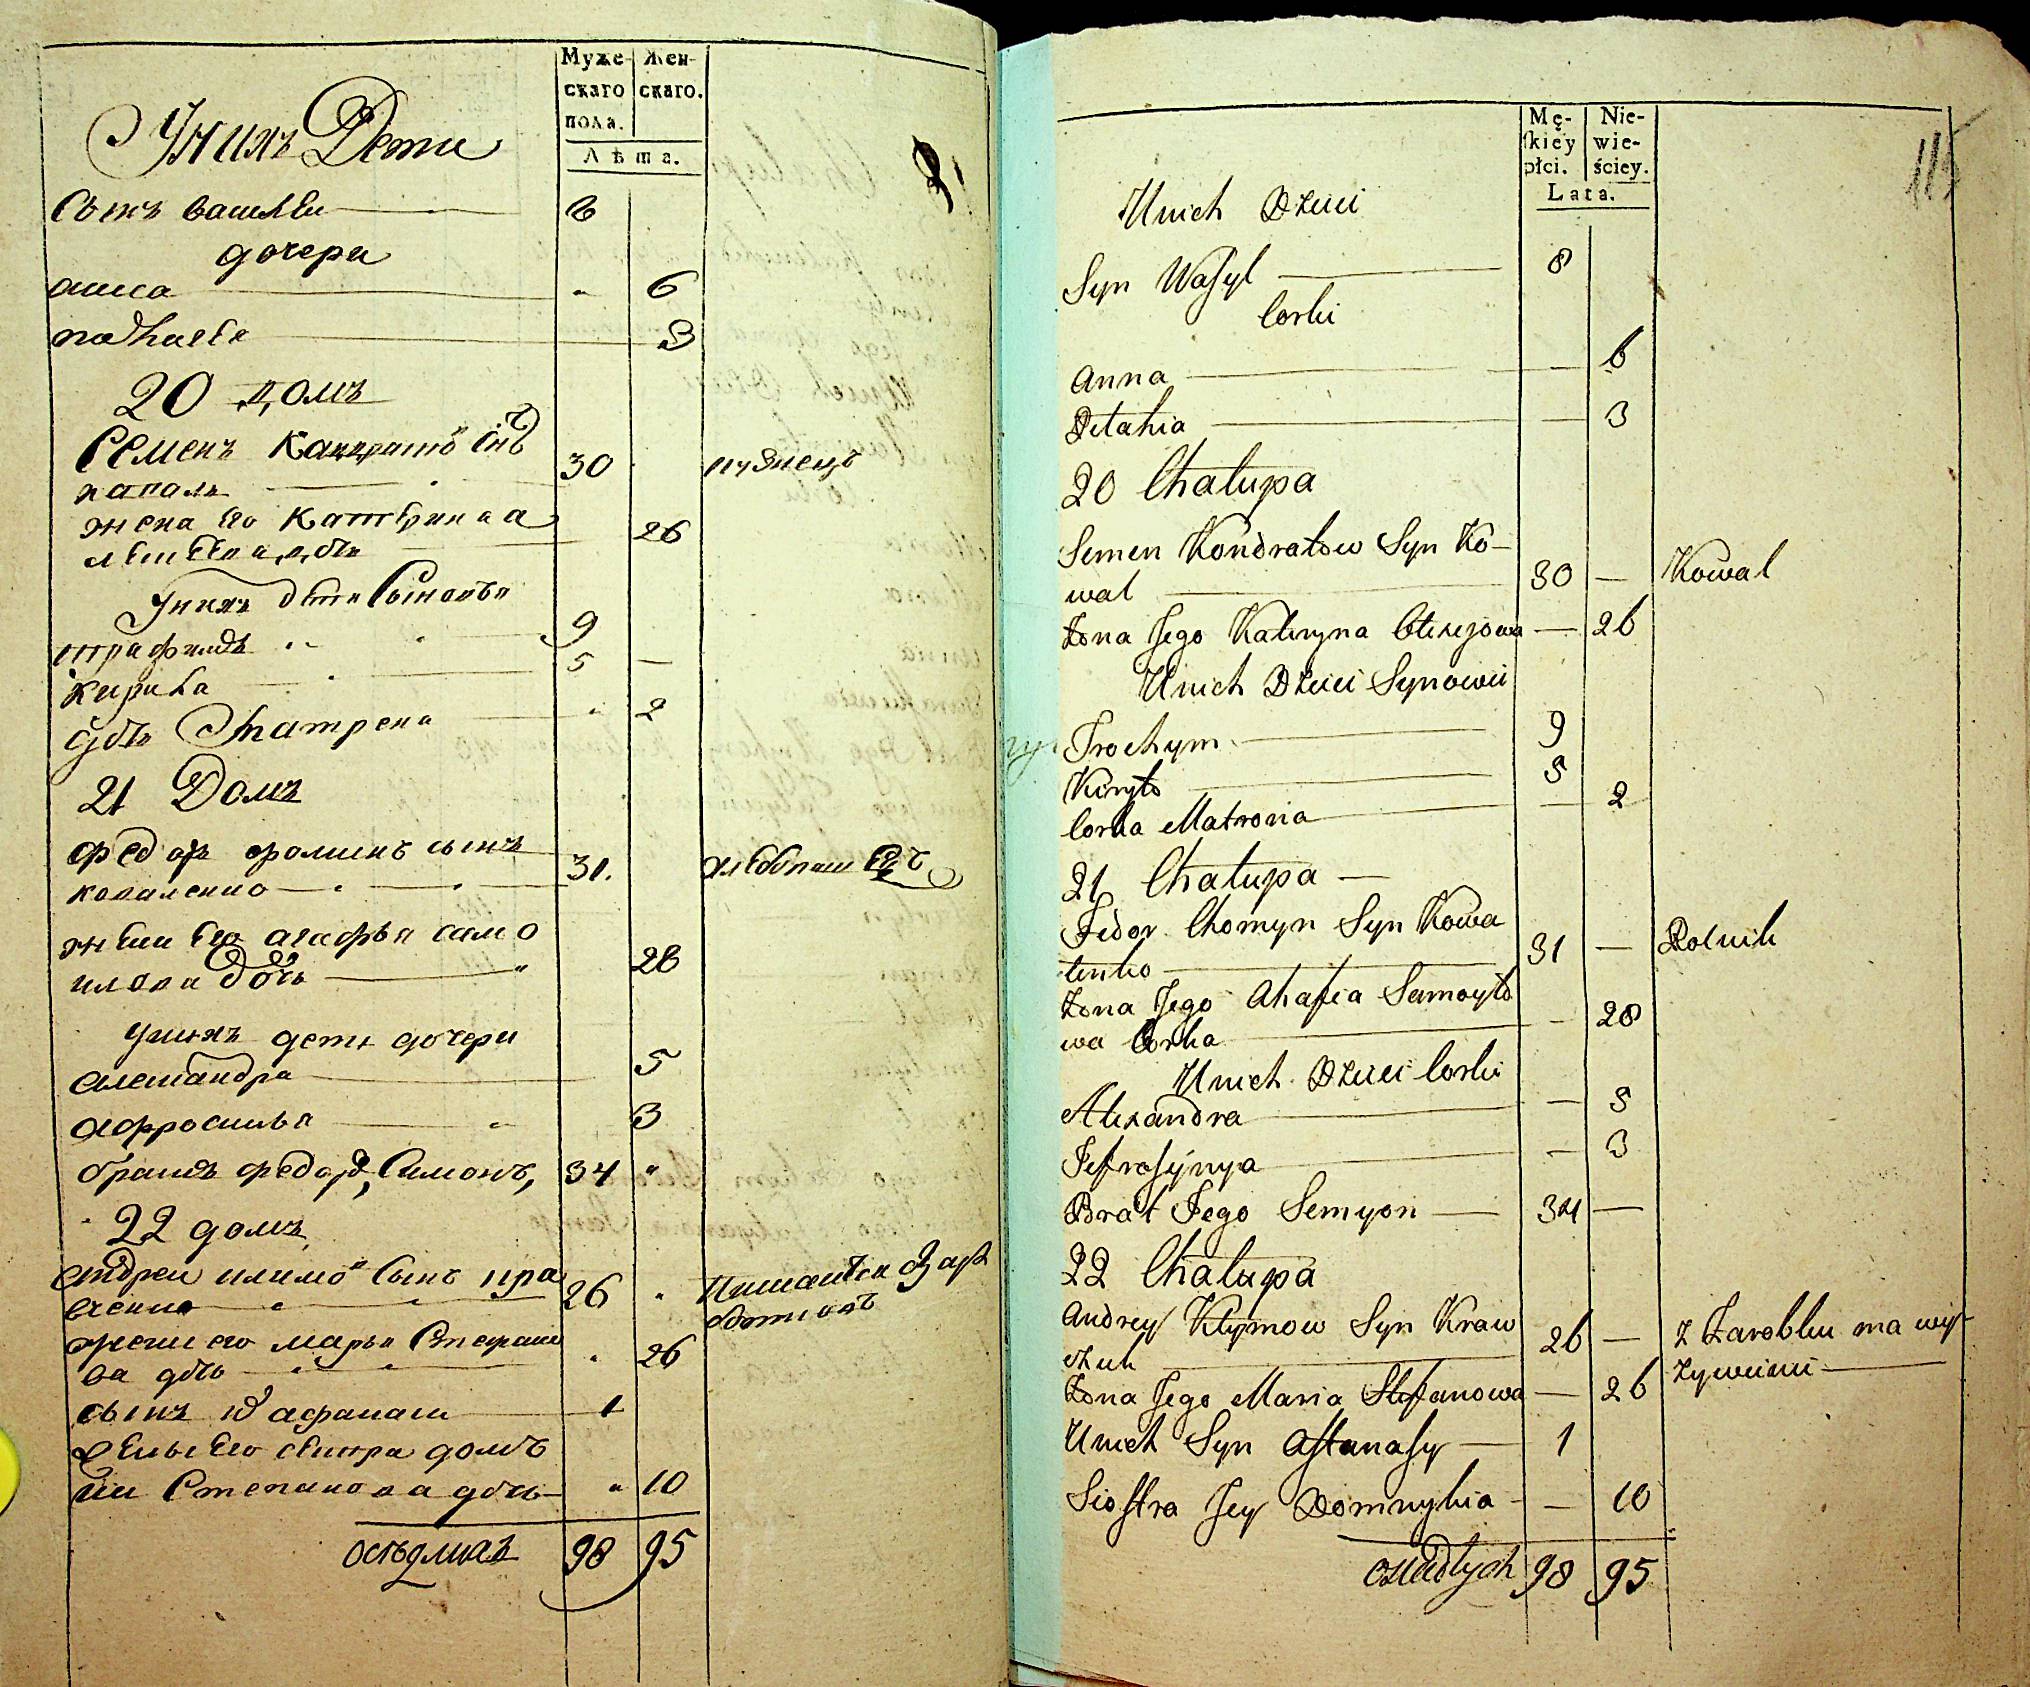 Муже-
скаго
пола.
Жен-
скаго.
Лѣта.
Унихъ Дети
Сынъ василеи 8
дочери
анна 6
3
20 домъ
Семенъ Кандратоⷡ Снъ 30 кузнецъ
коваль
жена Его Катерина а 26
Унихъ дети Сыновья
трафимъ 9
кирила 5
дочь Матрена 2
21 Домъ
федоръ фоминъ сынъ 31. хлебопашецъ
коваленко
жена Его агафья само
илова дочь 28
унихъ дети дочери
александра 5
афросинья 3
братъ федора, Симонъ, 34
22 домъ
андреи климоⷡ Сынъ кра 26 Питаѣтся Зара
вченко боткою
жена его марья Стефано
ва дочь 26
сынъ афанаси 1
Жены Его сестра дом
ки Степанова дочь 10
оседлихъ 98 95
Mę-
skiey
płci.
Nie-
wie-
ściey.
Lata.
115
Unich Dzieci
Syn Wasyl 8
Corki
Anna 6
Petahia 3
20 Chalupa
Semen Kondratow Syn Ko-
wal 30 — Kowal
Zona Jego Kateryna Olexejowa — 26
Unich Dzieci Synowie
Trochym 9
Kiryło 5
Corka Matrona — 2
21 Chalupa —
Fedor Chomyn Syn Kowa
lenko 31 — Rolnik
Zona Jego Ahafia Samoyło
wa Corka — 28
Unich Dzieci Corki
Alexandra — 5
Jefrosynya — 3
Brat Jego Semyon — 34 —
22 Chalupa
Andrey Klymow Syn Kraw
czuk 26 — Z Zarobku ma wy-
Zona Jego Maria Stefanowa — 26 zywieni
Unich Syn Afanasy — 1
Siostra Jey Domnykia — 10
osiadłych 98 95